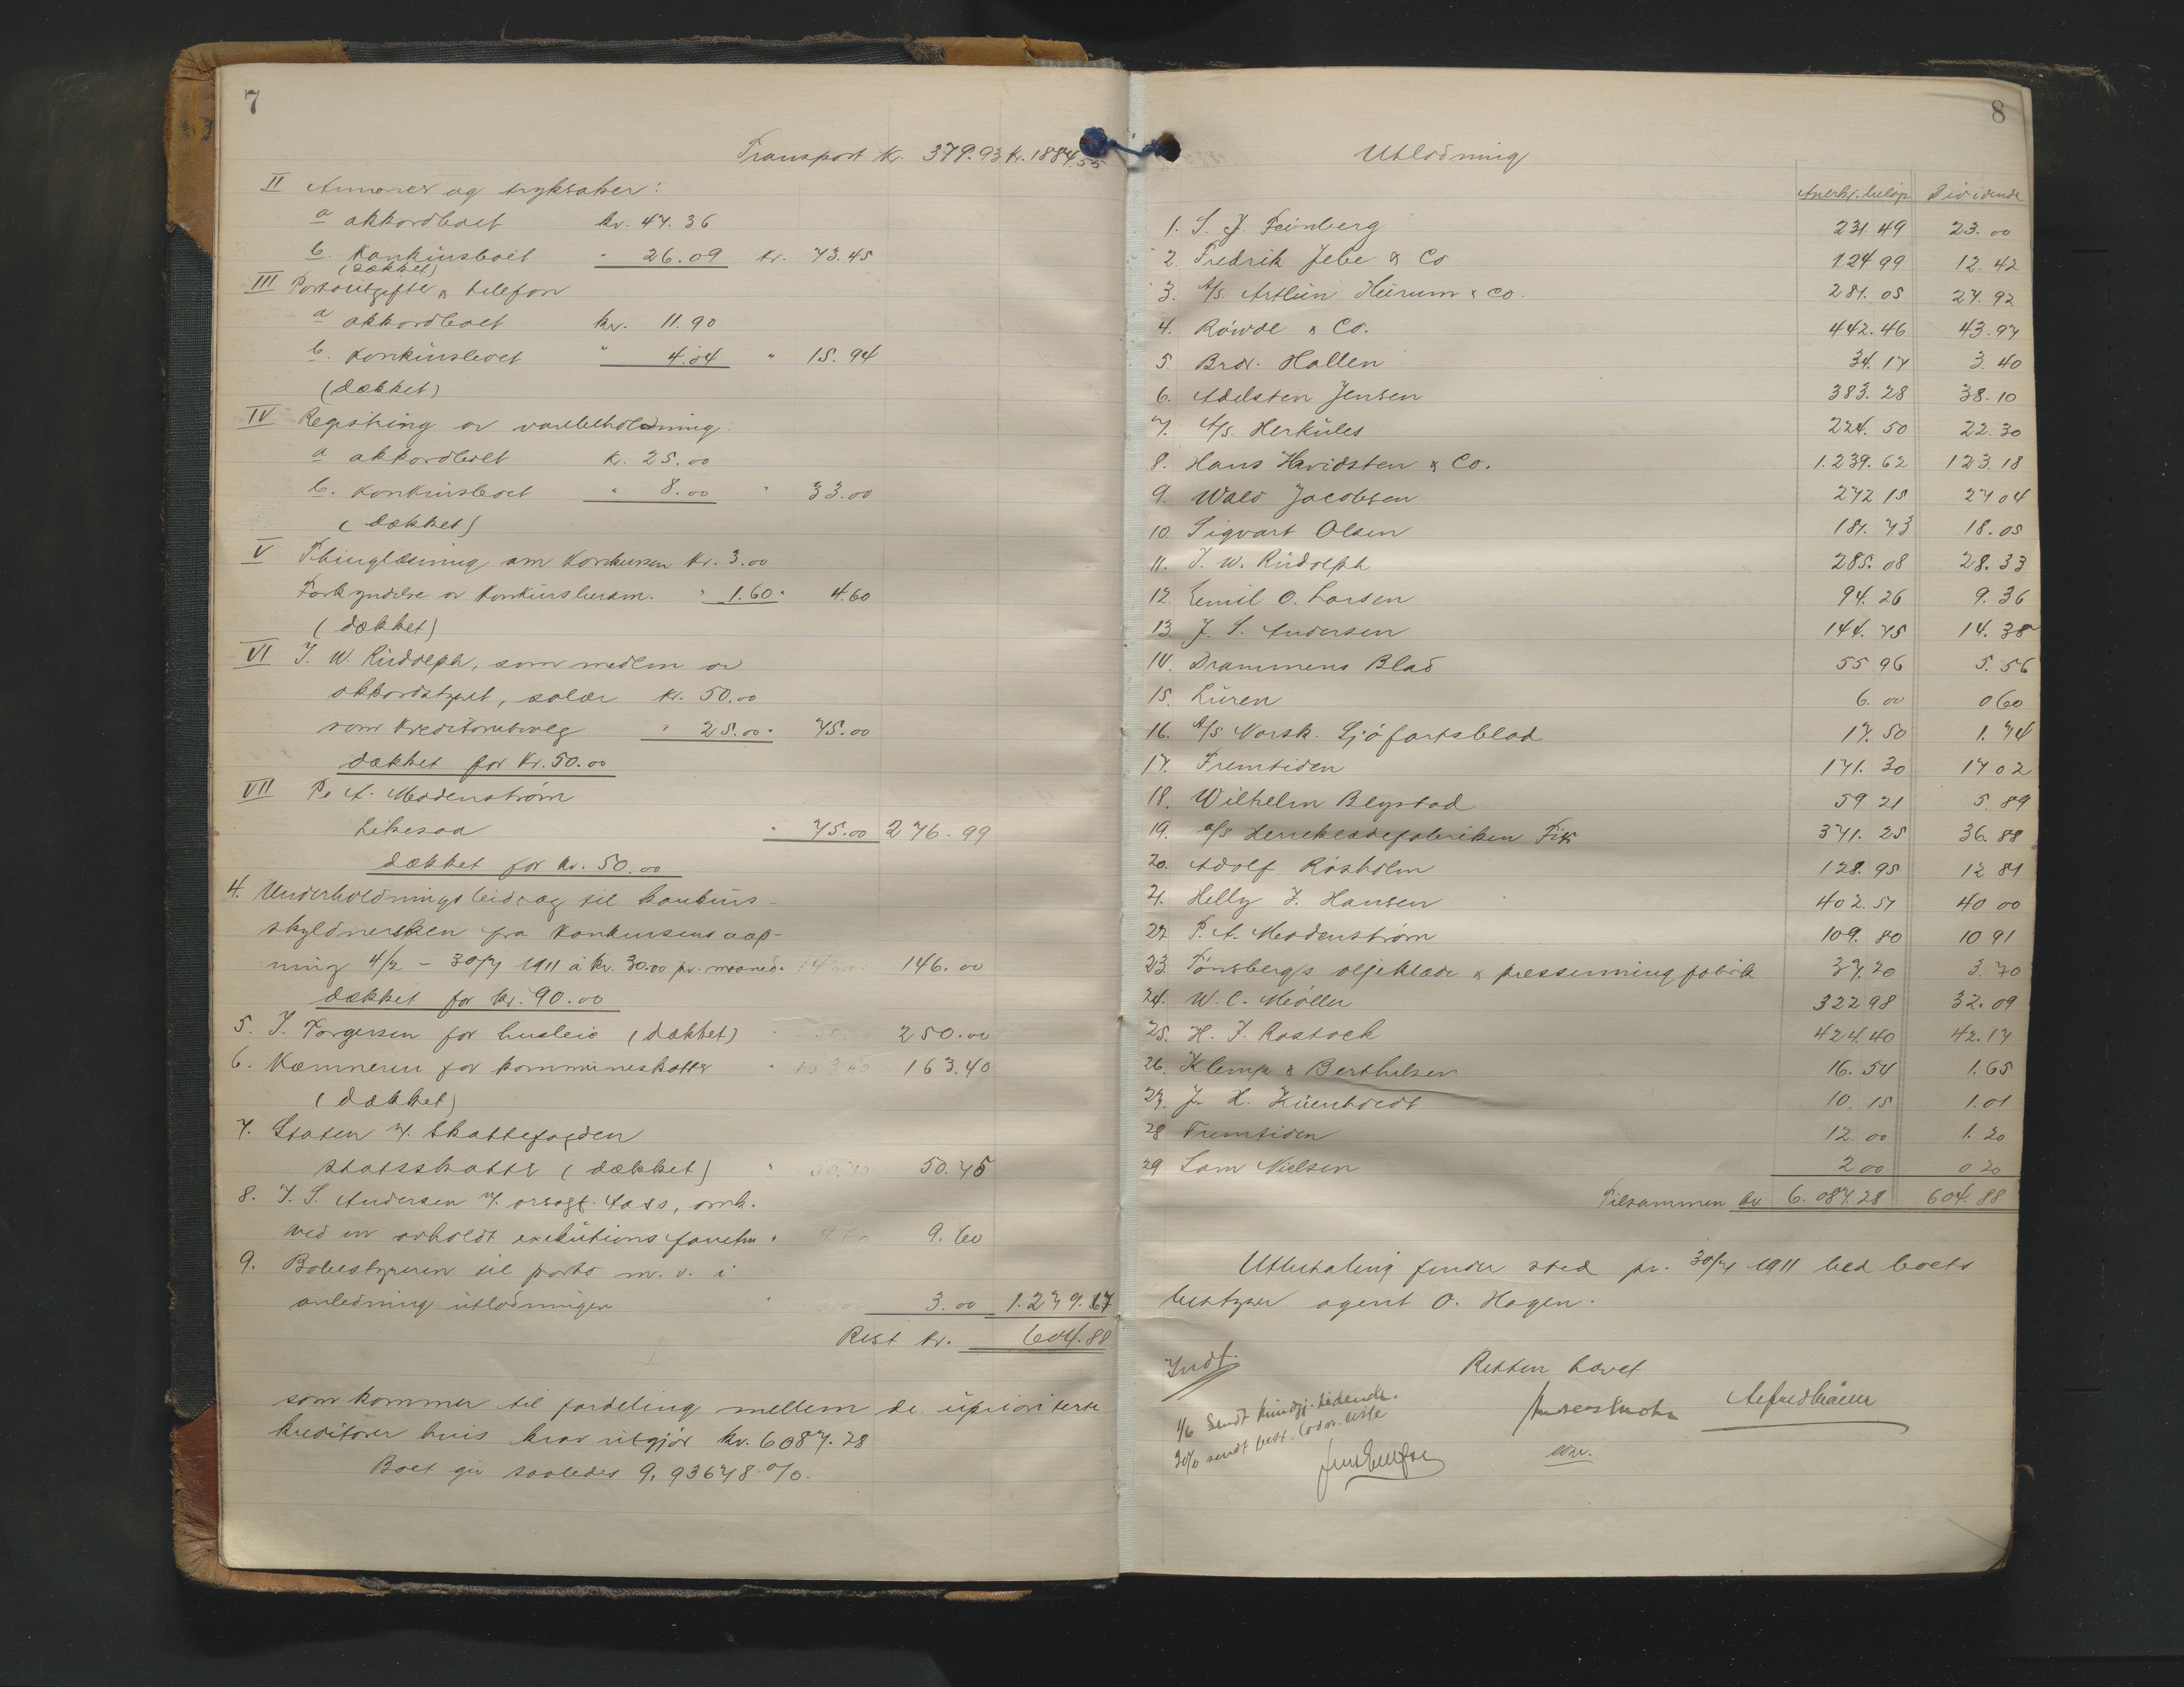 7
Transport kr. 379.93 kr. 1884.55
II Annoncer og tryksaker:
a akkordboet kr. 47.36
b. Konkursboet " 26.09 kr. 73.45
(dækket)
III Portoutgifter & telefon
a akkordboet kr. 11.90
b. Konkursboet " 4.04 " 15.94
(dækket)
IV Registring av varebeholdning:
a akkordboet kr. 25.00
b. Konkursboet " 8.00 " 33.00
(dækket)
V Thinglæsning om konkursen kr. 3.00
Forkyndelse av konkursberam. " 1.60 " 4.60
(dækket)
VI J. W. Rudolph, som medlem av
akkordstyret, salær kr. 50.00
som kreditorutvalg " 25.00 " 75.00
dækket for kr. 50.00
VII P. A. Modenstrøm
likesaa " 75.00 276.99
dækket for kr. 50.00
4. Underholdningsbidrag til konkurs-
skyldnersken fra konkursens aap-
ning 4/2 - 30/7 1911 à kr. 30.00 pr. maaned. 146.00
dækket for kr. 90.00
5. J. Torgersen for husleie (dækket) 250.00
6. Kæmneren for kommuneskatter " 163.40
(dækket)
7. Staten v. Skattefogden
statsskatter (dækket) " 50.75
8. J. S. Andersen v. orsagf. Aass, omk.
ved en avholdt exekutionsforretn. " 9.60
9. Bobestyreren til porto m. v. i
anledning utlodningen 3.00 1.279.67
Rest kr. 604.88
som kommer til fordeling mellem de upriorterte
kreditorer hvis krav utgjør kr. 6087.28
Boet gir saaledes 9,93678 %.
8
Utlodning
Anerkj. beløp Dividende
1. S. J. Feinberg 231.49 23.00
2. Fredrik Jebe & Co 124 99 12.42
3. A/S. Artlun Heurum & Co. 281.05 27.92
4. Røwde & Co. 442.46 43.97
5. Brdr. Hallen 34.17 3.40
6. Adelsten Jensen 383.28 38.10
7. A/S. Herkules 224.50 22.30
8. Hans Hvidsten & Co. 1.239.62 123.18
9. Wald Jacobsen 272 15 27 04
10. Sigvart Olsen 181.73 18.05
11. J. W. Rudolph 285.08 28.33
12. Emil O. Larsen 94.26 9.36
13. J. S. Andersen 144.75 14.38
14. Drammens Blad 55 96 5.56
15. Luren 6.00 0 60
16. A/S Norsk. Sjøfartsblad 17.50 1.74
17. Fremtiden 171.30 17 02
18. Wilhelm Blystad 59 21 5.89
19. a/s Herreklædefabriken Fix 371.25 36.88
20. Adolf Røsholm 128.95 12 81
21. Helly J. Hansen 402.57 40 00
22. P. A. Modenstrøm 109.80 10 91
23. Tønsbergs oljeklæde & pressenningfabrik 37.20 3.70
24. W. C. Møller 322 98 32.09
25. H. J. Rostock 424.40 42.17
26. Klemp & Berthelsen 16.54 1.65
27. J. H. Küenholdt 10.15 1.01
28 Fremtiden 12.00 1.20
29 Sam Nielsen 2 00 0 20
Tilsammen kr. 6.087.28 604.88
Utbetaling finder sted pr. 30/7 1911 ved boets
bestyrer agent O. Hagen.
Retten hævet
Indf.
1/6 Sendt kundgj. tidende.